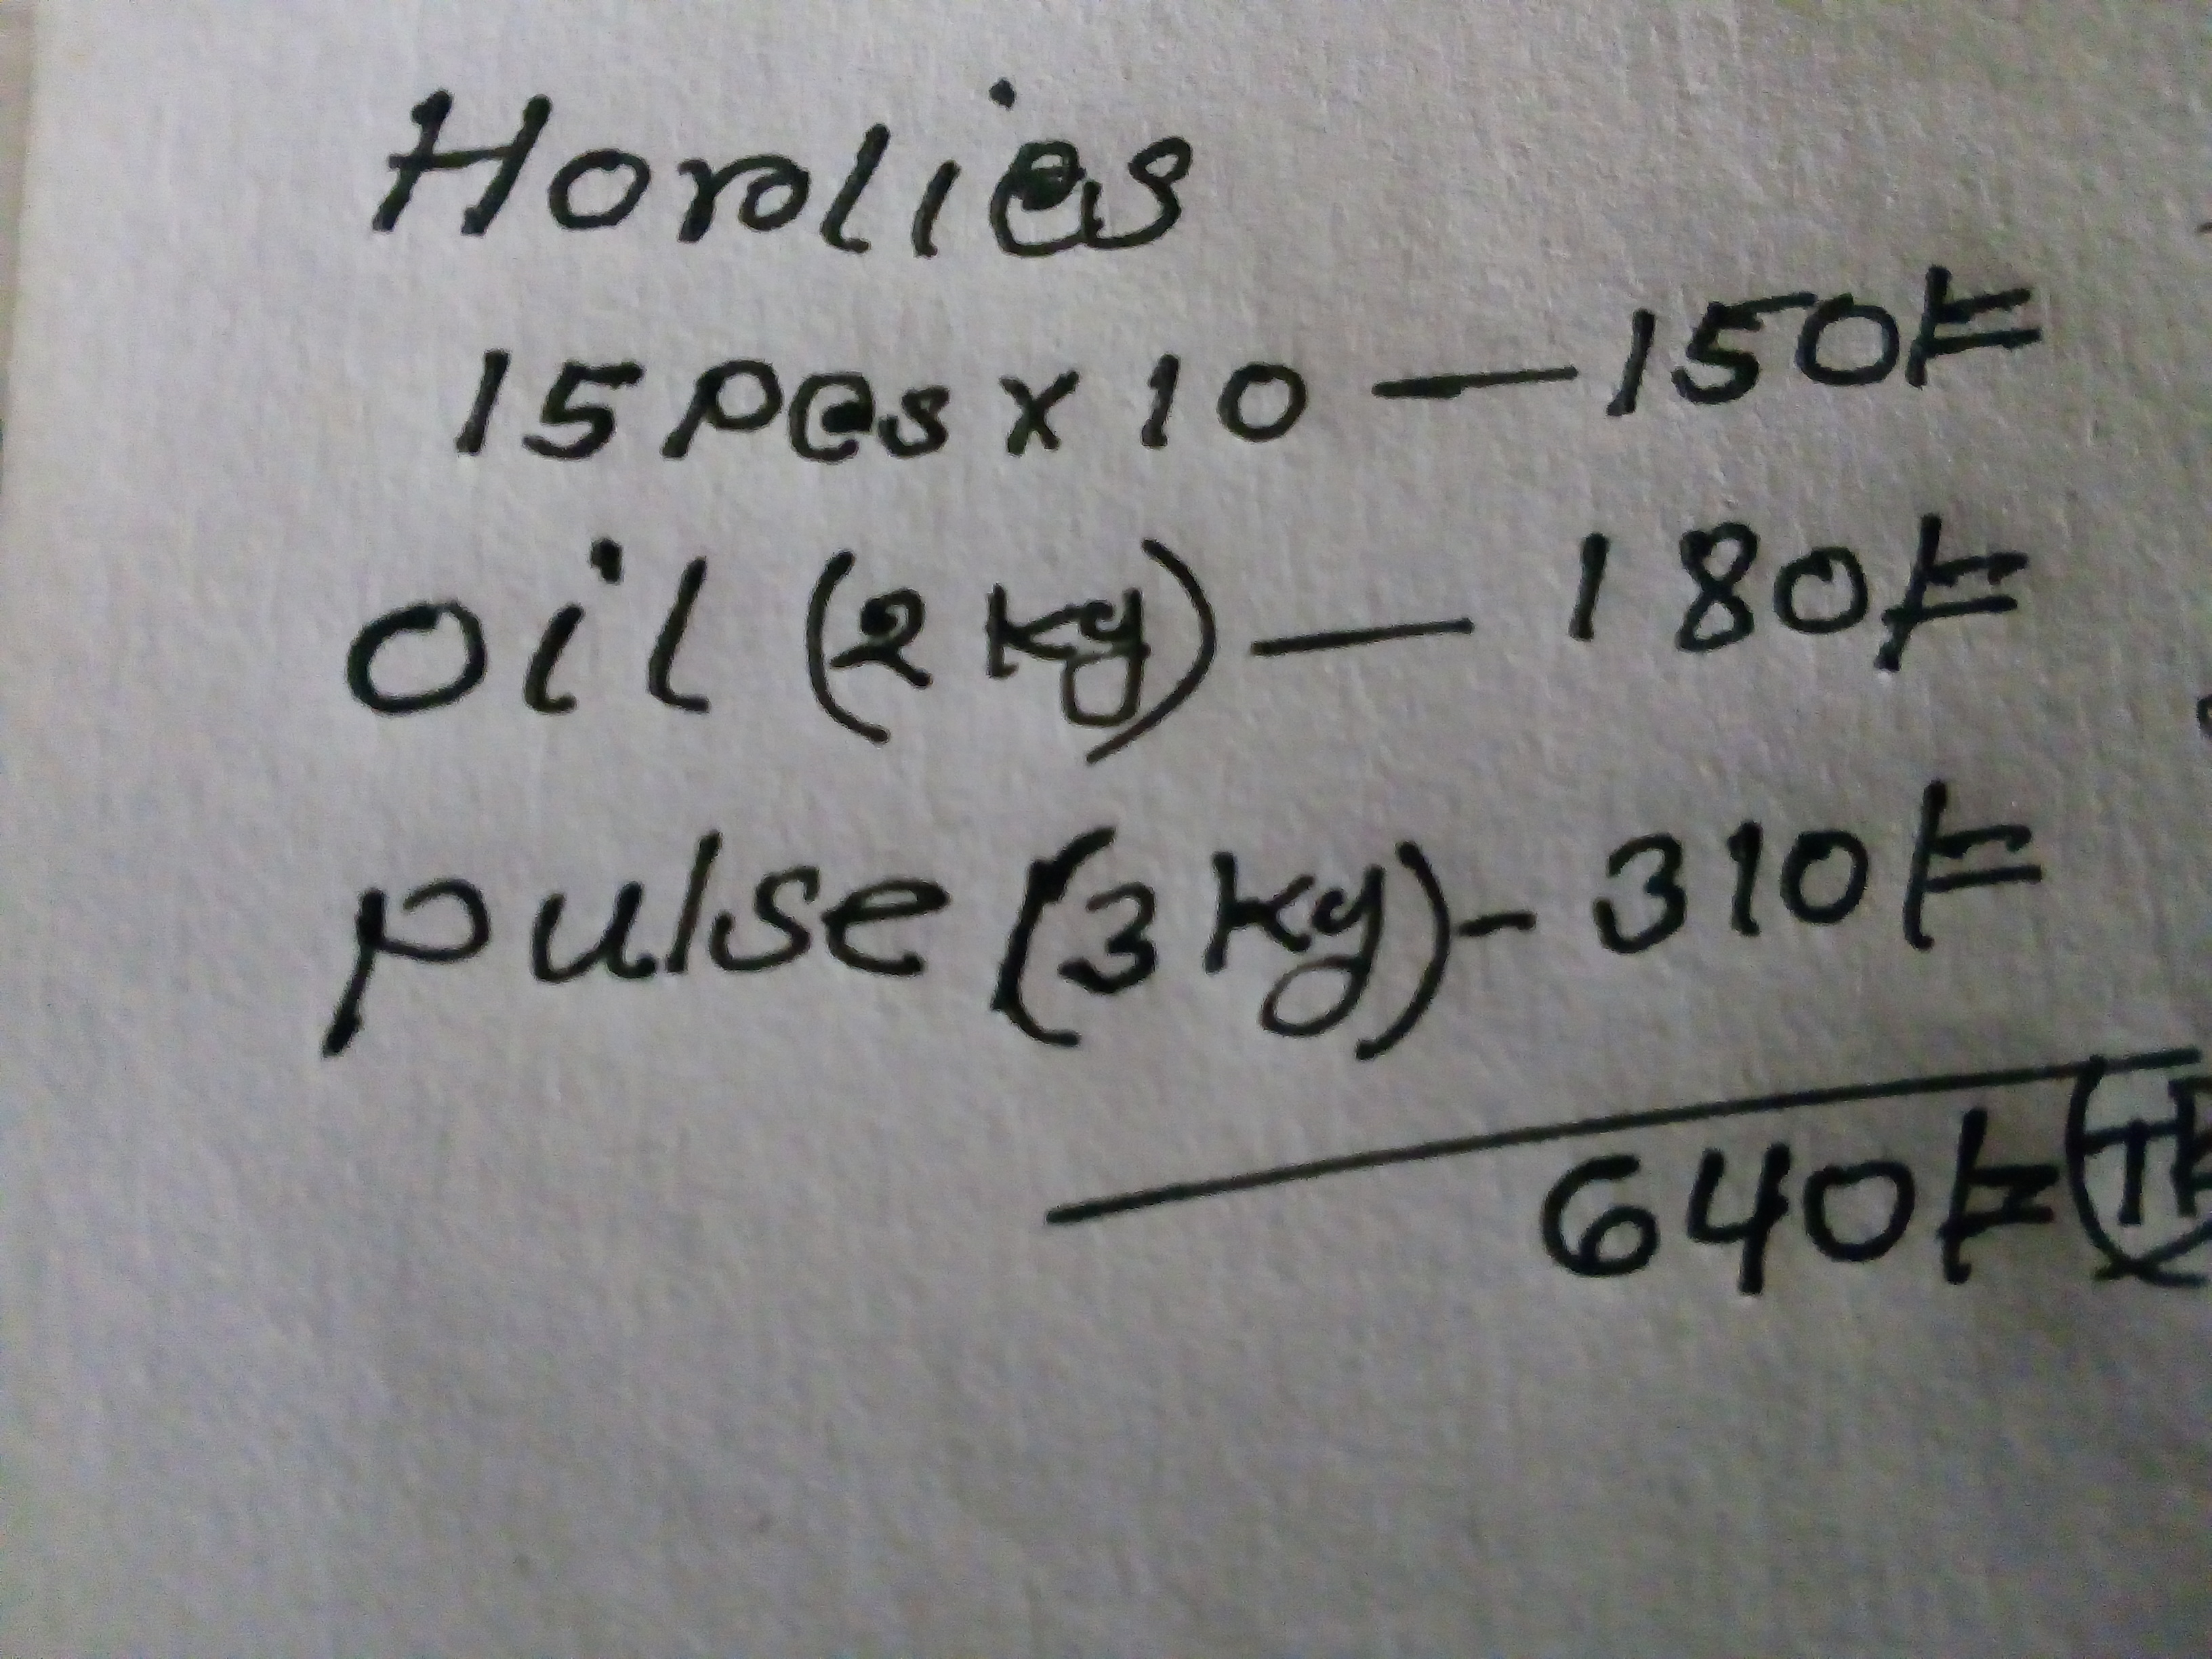 Horlies
15 Pcs x 10 — 150/=
oil (2 kg) — 180/=
pulse (3 kg) - 310/=
640/=